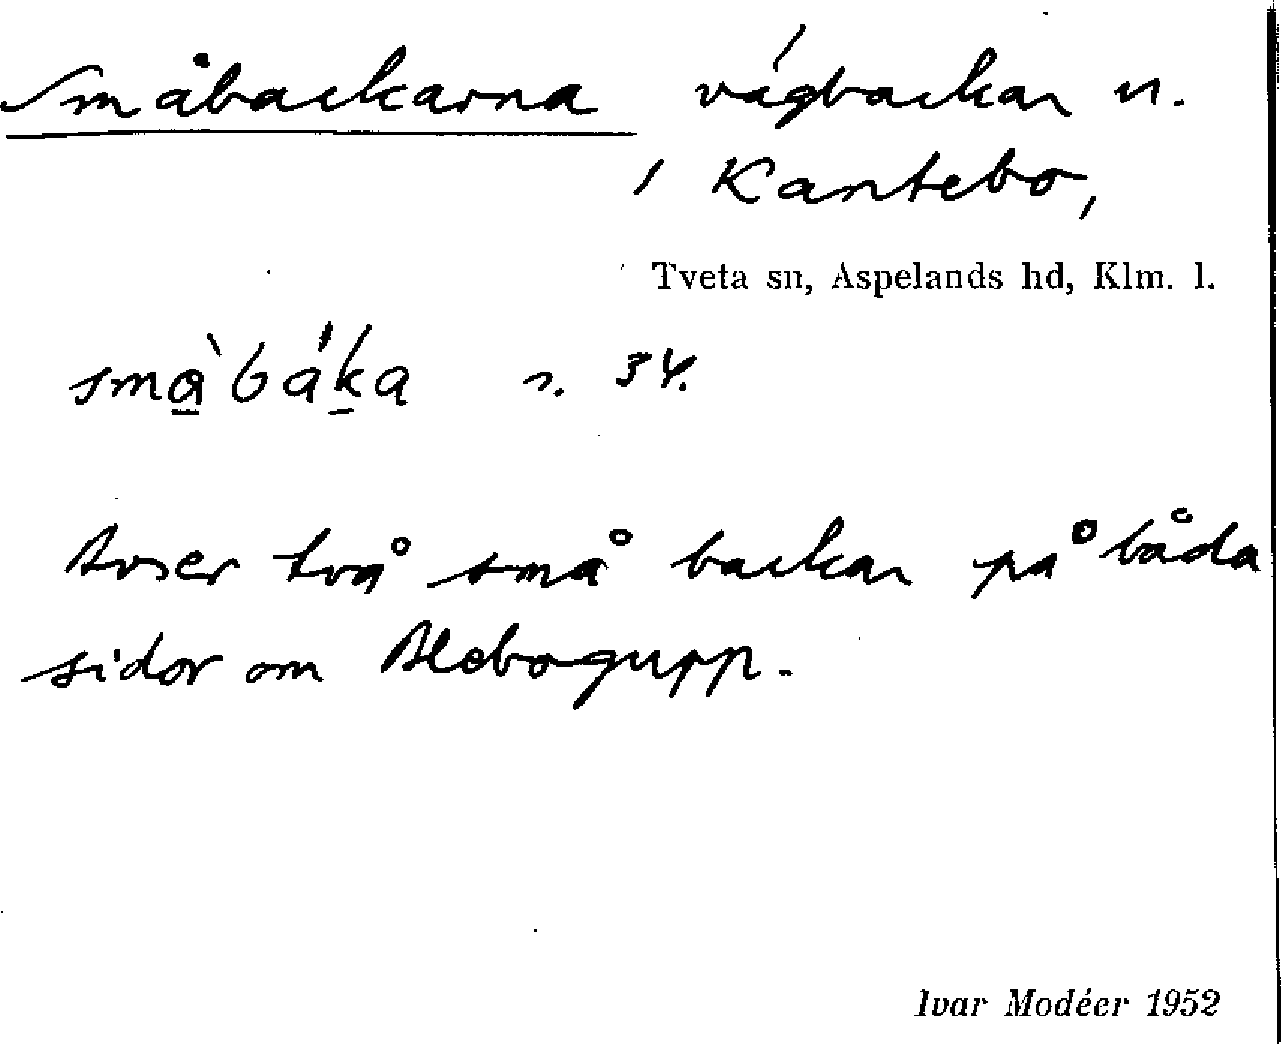 Småbackarna vägbackar n.
i Kantebo,
Tveta sn, Aspelands hd, Klm. l.
små`bák̠a s. 34.
Avser två små backar på båda
sidor om Alebogupp.
Ivar Modéer 1952